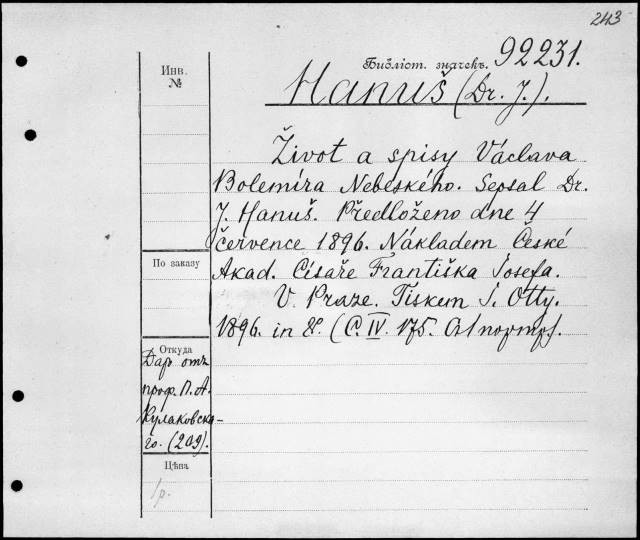 243
Инв. №
Библіот. значекъ. 92231.
Hanuš (Dr. J.).
Život a spisy Václava
Bolemíra Nebeského. Sepsal Dr.
J. Hanuš. Předloženo dne 4
července 1896. Nákladem České
Akad. Císaře Františka Josefa.
V Praze. Tiskem J. Otty.
1896. in 8. (C. IV. 175.
По заказу
Откуда
Даръ отъ
проф. П. А.
Кулаковска-
го. (209).
Цѣна
1р.